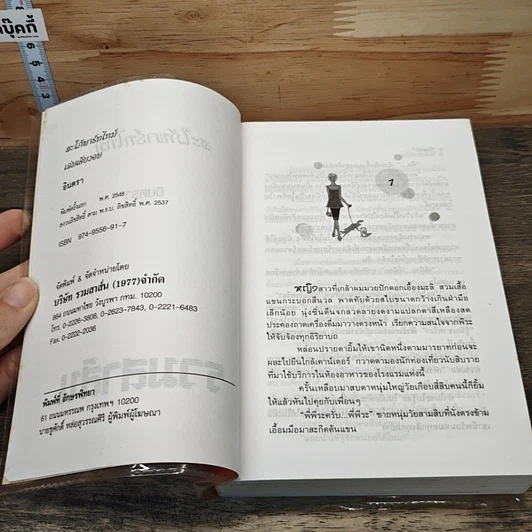 บุ๊คกี้
6 5 4 3
สะใภ้พาร์ทไทม์
แม่มดเจ้าเสน่ห์
อินตรา
พิมพ์ครั้งแรก พ.ศ. 2548
สงวนลิขสิทธิ์ ตาม พ.ร.บ. ลิขสิทธิ์ พ.ศ. 2537
ISBN 974-9556-91-7
จัดพิมพ์ & จัดจำหน่ายโดย
บริษัท รวมสาส์น (1977) จำกัด
864 ถนนมหาไชย วังบูรพา กทม. 10200
โทร. 0-2226-3808, 0-2623-7843, 0-2221-6483
Fax. 0-2222-2036
พิมพ์ที่ อักษรพิทยา
61 ถนนแพรงนรา กรุงเทพฯ 10200
นายชูศักดิ์ หล่อสุวรรณศิริ ผู้พิมพ์ผู้โฆษณา
1
หญิงสาวที่เกล้าผมมวยปักดอกเอื้องมะลิ สวมเสื้อ
แขนกระบอกสีนวล พาดทับด้วยสไบขนาดกว้างเกินฝ่ามือ
เล็กน้อย นุ่งซิ่นตีนจกลวดลายงดงามแปลกตาสีเหลืองสด
ประคองถาดเครื่องดื่มมาวางตรงหน้า เรียกความสนใจจากพีระ
ให้จับจ้องทุกอิริยาบถ
หล่อนปรายตายิ้มให้เขานิดหนึ่งตามมารยาทก่อนจะ
ผละไปยืนใกล้เคาน์เตอร์ กวาดตามองนักท่องเที่ยวนับสิบราย
ที่มาใช้บริการในห้องอาหารของโรงแรมแห่งนี้
ครั้นเหลือบมาสบตาหนุ่มใหญ่วัยเกือบสี่สิบคนนี้ก็ยิ้ม
ให้แล้วหันไปคุยกับเพื่อนๆ
"พี่พีระครับ...พี่พีระ" ชายหนุ่มวัยสามสิบที่นั่งตรงข้าม
เอื้อมมือมาสะกิดต้นแขน